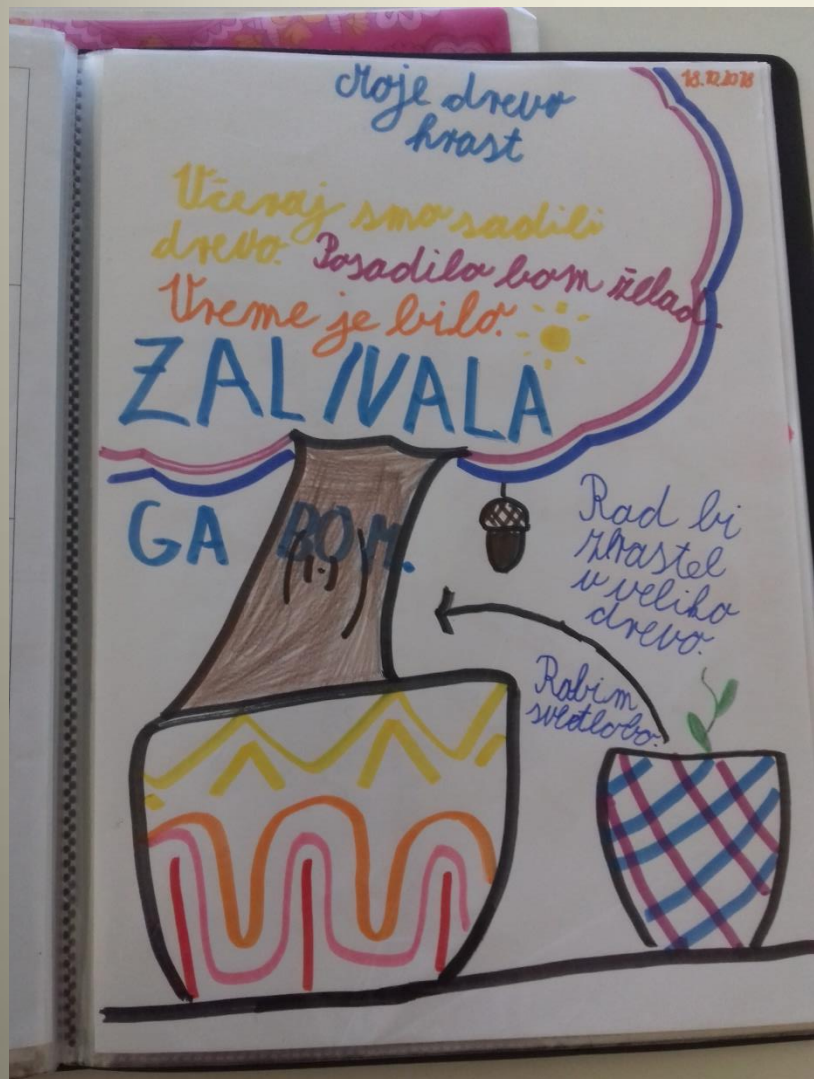 18.10.2018
Moje drevo
hrast
Včeraj smo sadili
drevo. Posadila bom želod.
Vreme je bilo.
ZALIVALA
GA BOM.
Rad bi
zrastel
v veliko
drevo.
Rabim
svetlobo.